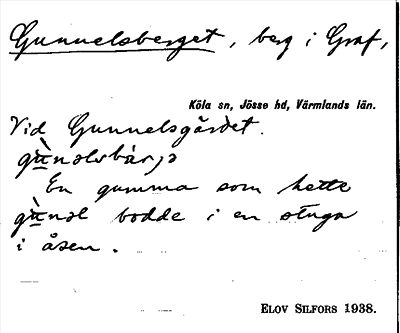 Gunnelsberget, berg i Graf,
Köla sn, Jösse hd, Värmlands län.
Vid Gunnelsgärdet.
En gumma som hette
bodde i en stuga
i åsen.
ELOV SILFORS 1938.